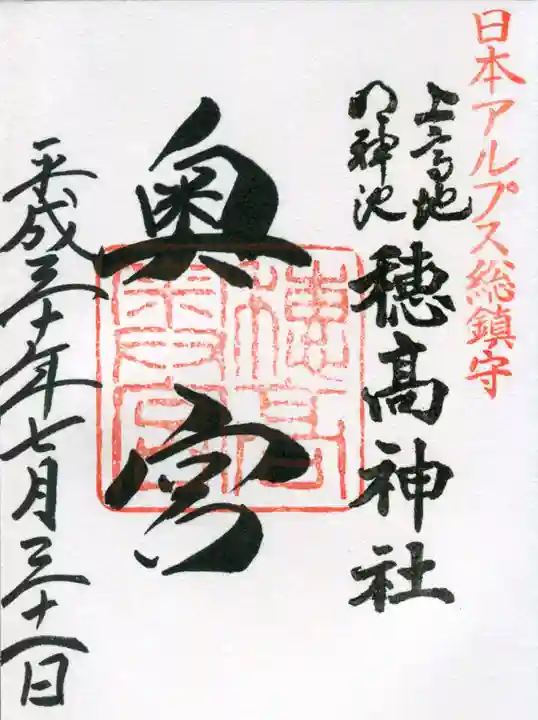 日本アルプス総鎮守
上高地
明神池
穂髙神社
奥宮
穂高
奥宮
平成三十年七月三十一日